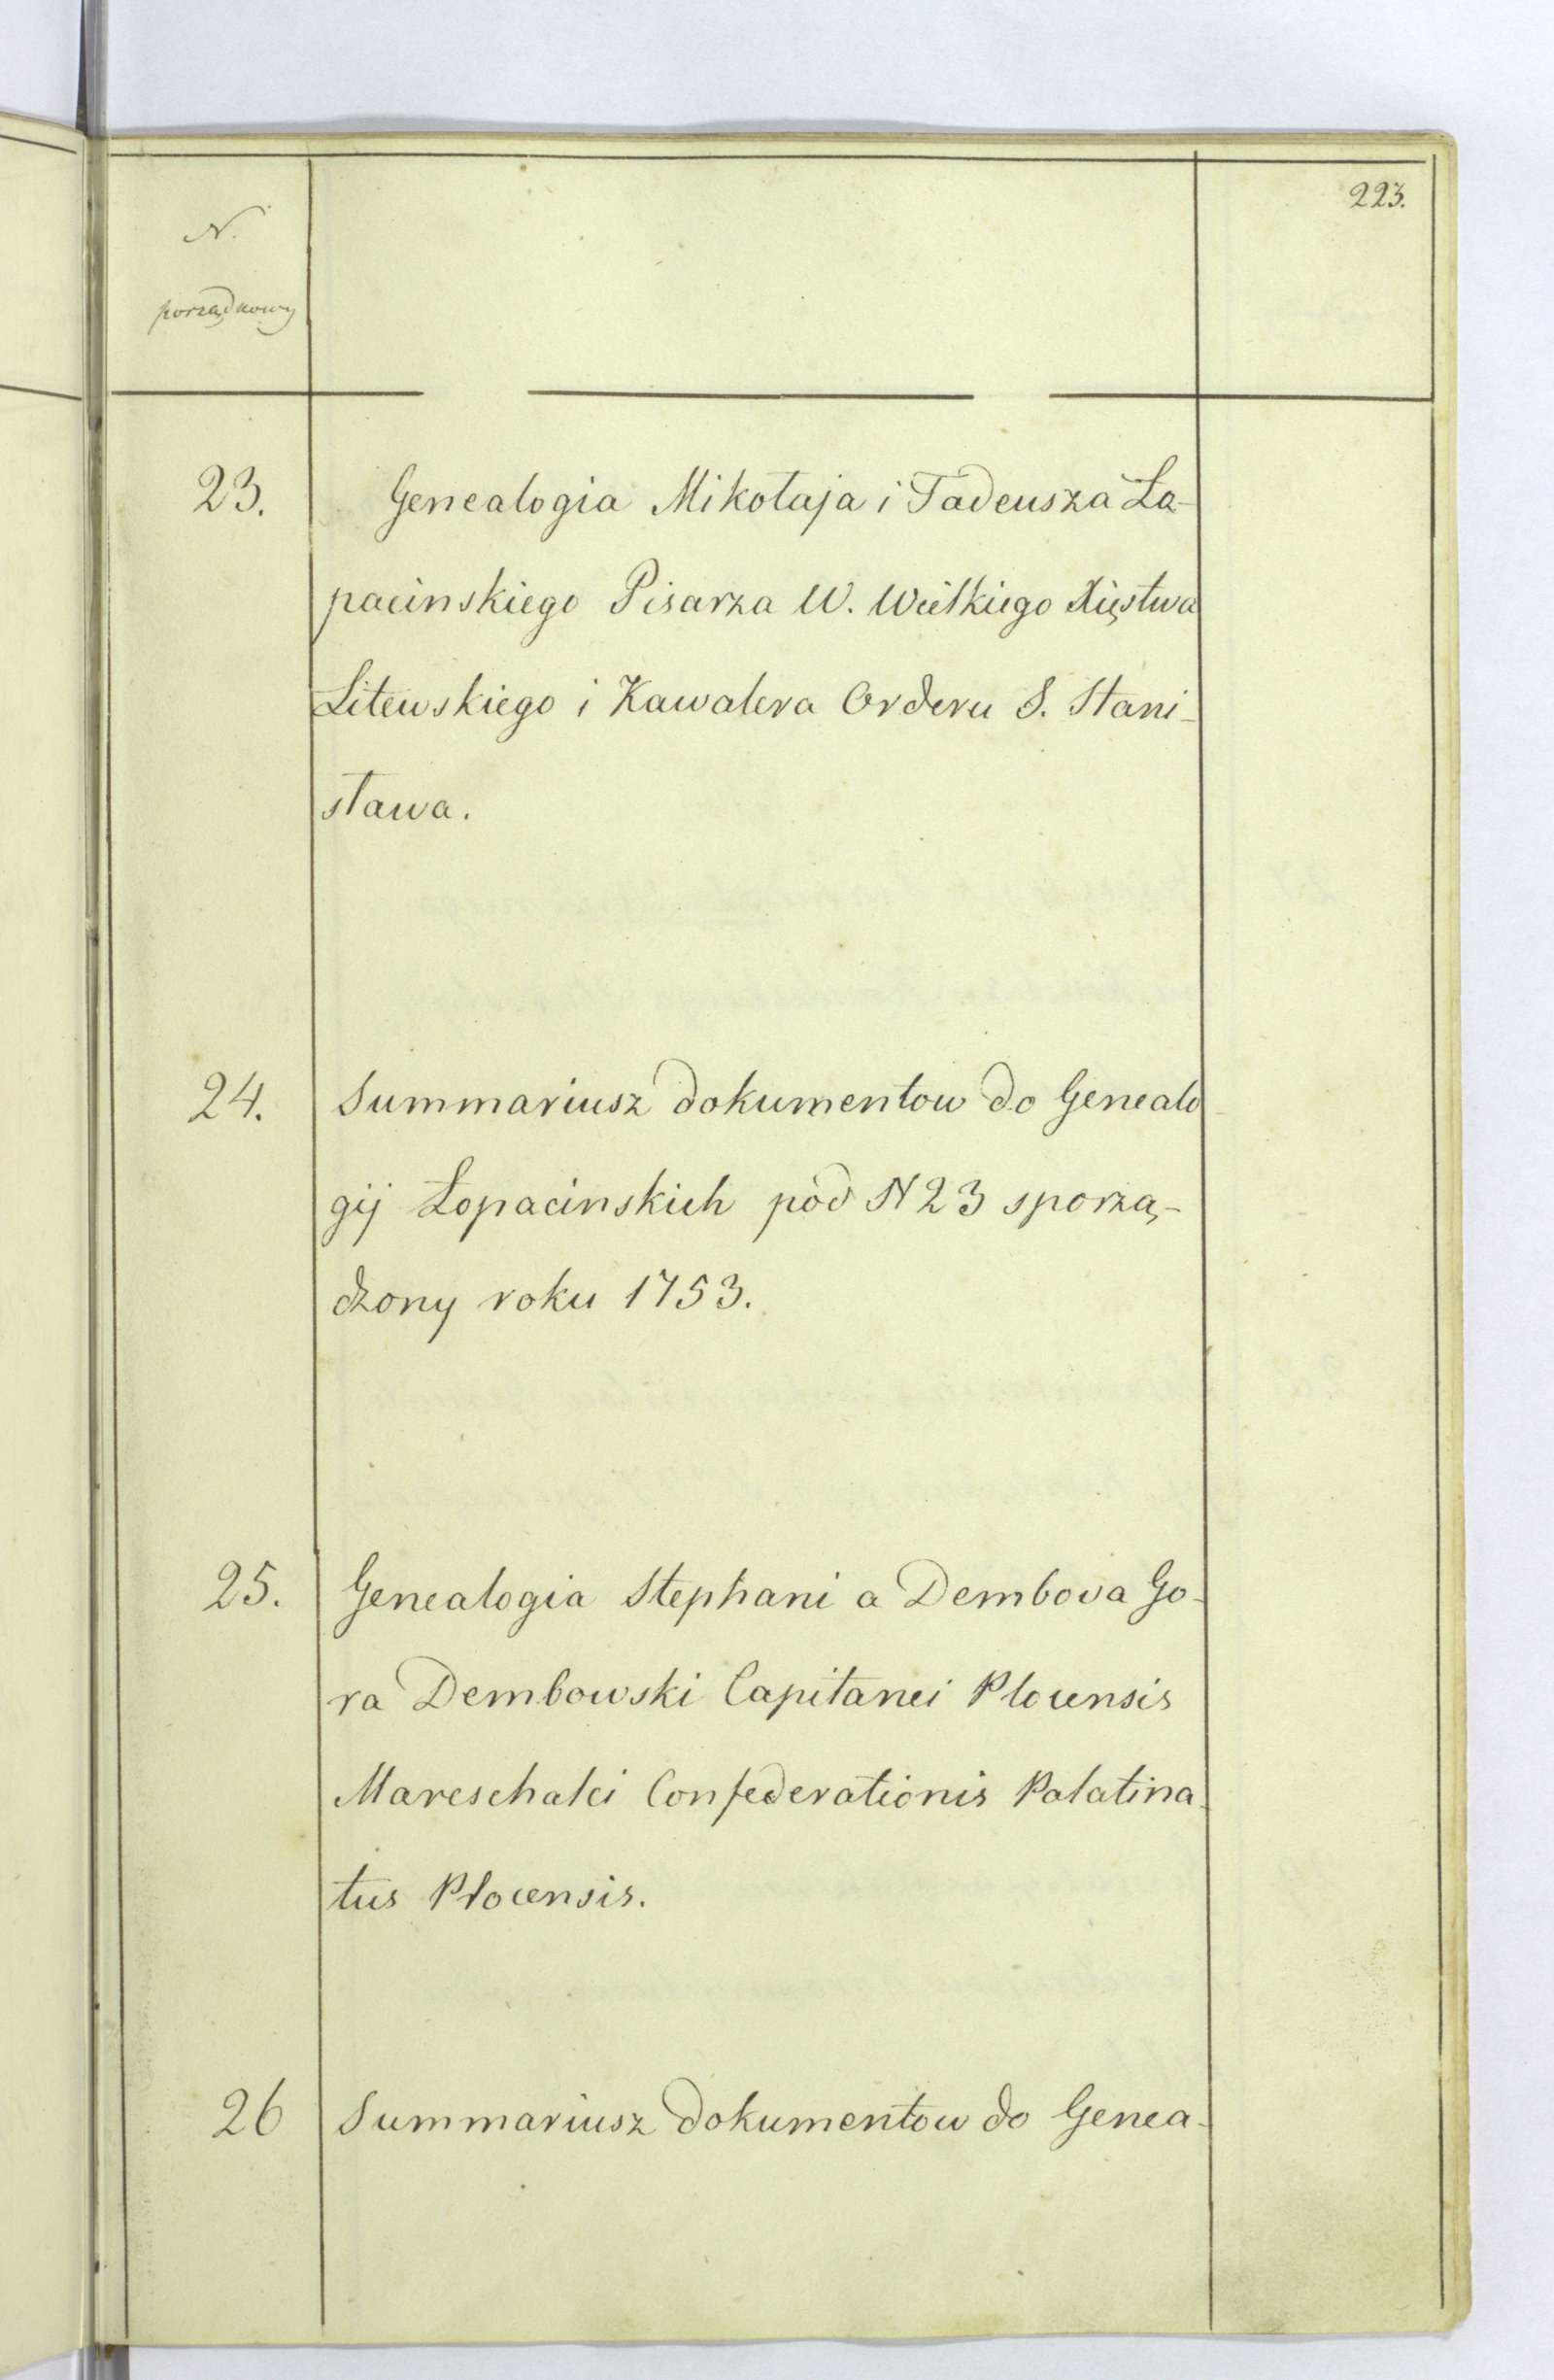 223.
N.
porządkowy
23.
Genealogia Mikołaja i Tadeusza Ła-
pacinskiego Pisarza W. Wielkiego Xięstwa
Litewskiego i Kawalera Orderu S. Stani-
sława.
24.
Summariusz dokumentow do Genealo
gij Łopacinskich pod N 23 sporzą-
dzony roku 1753.
25.
Genealogia Stephani a Dembova Go-
ra Dembowski Capitanei Plocensis
Mareschalci Confederationis Palatina-
tus Plocensis.
26
Summariusz dokumentow do Genea-